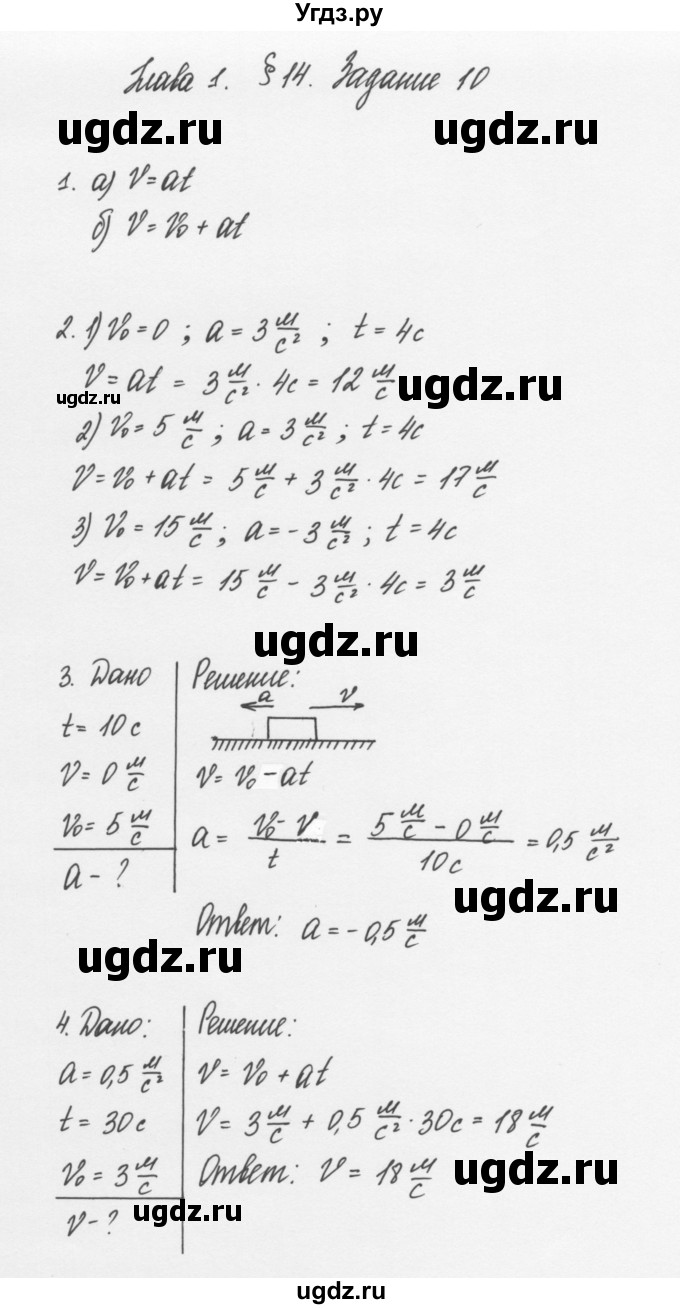 Угдз.ру
Глава 1. § 14. Задание 10
ugdz.ru ugdz.ru
1. а) V = at
б) V = V₀ + at
2. 1) V₀ = 0 ; a = 3 м/с² ; t = 4с
V = at = 3 м/с² · 4с = 12 м/с
ugdz.ru ugdz.ru
2) V₀ = 5 м/с ; a = 3 м/с² ; t = 4с
V = V₀ + at = 5 м/с + 3 м/с² · 4с = 17 м/с
3) V₀ = 15 м/с ; a = -3 м/с² ; t = 4с
V = V₀ + at = 15 м/с - 3 м/с² · 4с = 3 м/с
ugdz.ru
3. Дано
t = 10 с
V = 0 м/с
V₀ = 5 м/с
a - ?
Решение:
a v
V = V₀ - at
a = (V₀ - V)/t = (5 м/с - 0 м/с)/10с = 0,5 м/с²
ugdz.ru
Ответ: a = -0,5 м/с
ugdz.ru
4. Дано:
a = 0,5 м/с²
t = 30с
V₀ = 3 м/с
V - ?
Решение:
V = V₀ + at
V = 3 м/с + 0,5 м/с² · 30с = 18 м/с
Ответ: V = 18 м/с
ugdz.ru
ugdz.ru
ugdz.ru